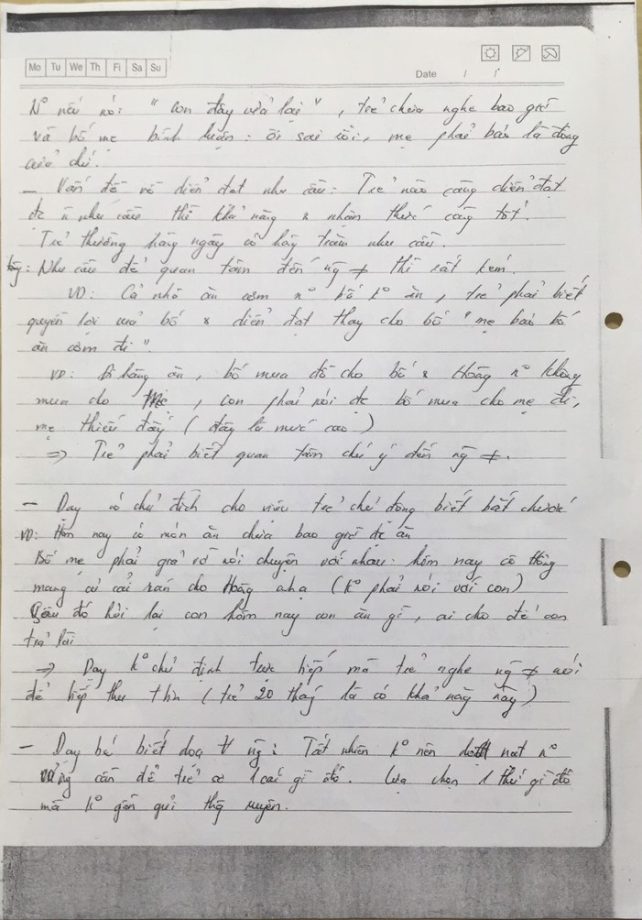 Mo Tu We Th Fi Sa Su
Date / /
No nếu nói: " con đây vừa lại ", trẻ chưa nghe bao giờ
và bố mẹ bình luận: ôi sai rồi, mẹ phải bảo là đóng
cửa chứ.
- Vấn đề về diễn đạt nhu cầu: Trẻ nào càng diễn đạt
đc n nhu cầu thì khả năng & nhận thức càng tốt.
Trẻ thường hàng ngày có hàng trăm nhu cầu.
Nhu cầu để quan tâm đến ng ≠ thì rất kém.
VD: Cả nhà ăn cơm n° bố k° ăn, trẻ phải biết
quyền lợi của bố & diễn đạt thay cho bố " mẹ bảo bố
ăn cơm đi ".
VD: Đi hàng ăn, bố mua đồ cho bố & Hoàng n° không
mua cho Mẹ, con phải nói đc bố mua cho mẹ đi,
mẹ thiếu đấy ( đây là mức cao )
⇒ Trẻ phải biết quan tâm chú ý đến ng ≠.
- Dạy có chủ đích cho việc trẻ chủ động biết bắt chước
VD: Hôm nay có món ăn chưa bao giờ đc ăn
Bố mẹ phải giả vờ nói chuyện với nhau: hôm nay cô Hồng
mang củ cải rán cho Hoàng a.hạ (k° phải nói với con)
Sau đó hỏi lại con hôm nay con ăn gì, ai cho để con
trả lời
⇒ Dạy k° chỉ định trực tiếp mà trẻ nghe ng ≠ nói
để tiếp thu thtn ( trẻ 20 tháng là có khả năng này )
- Dạy bé biết dọa ng: Tất nhiên k° nên nạt n°
cũng cần để trẻ 1 cái gì đó. Lựa chọn 1 thứ gì đó
mà k° gần gũi thg xuyên.